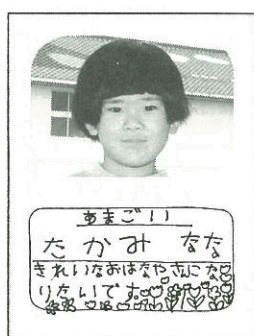 あまごい
たかみ なな
きれいなおはなやさんにな
りたいです。